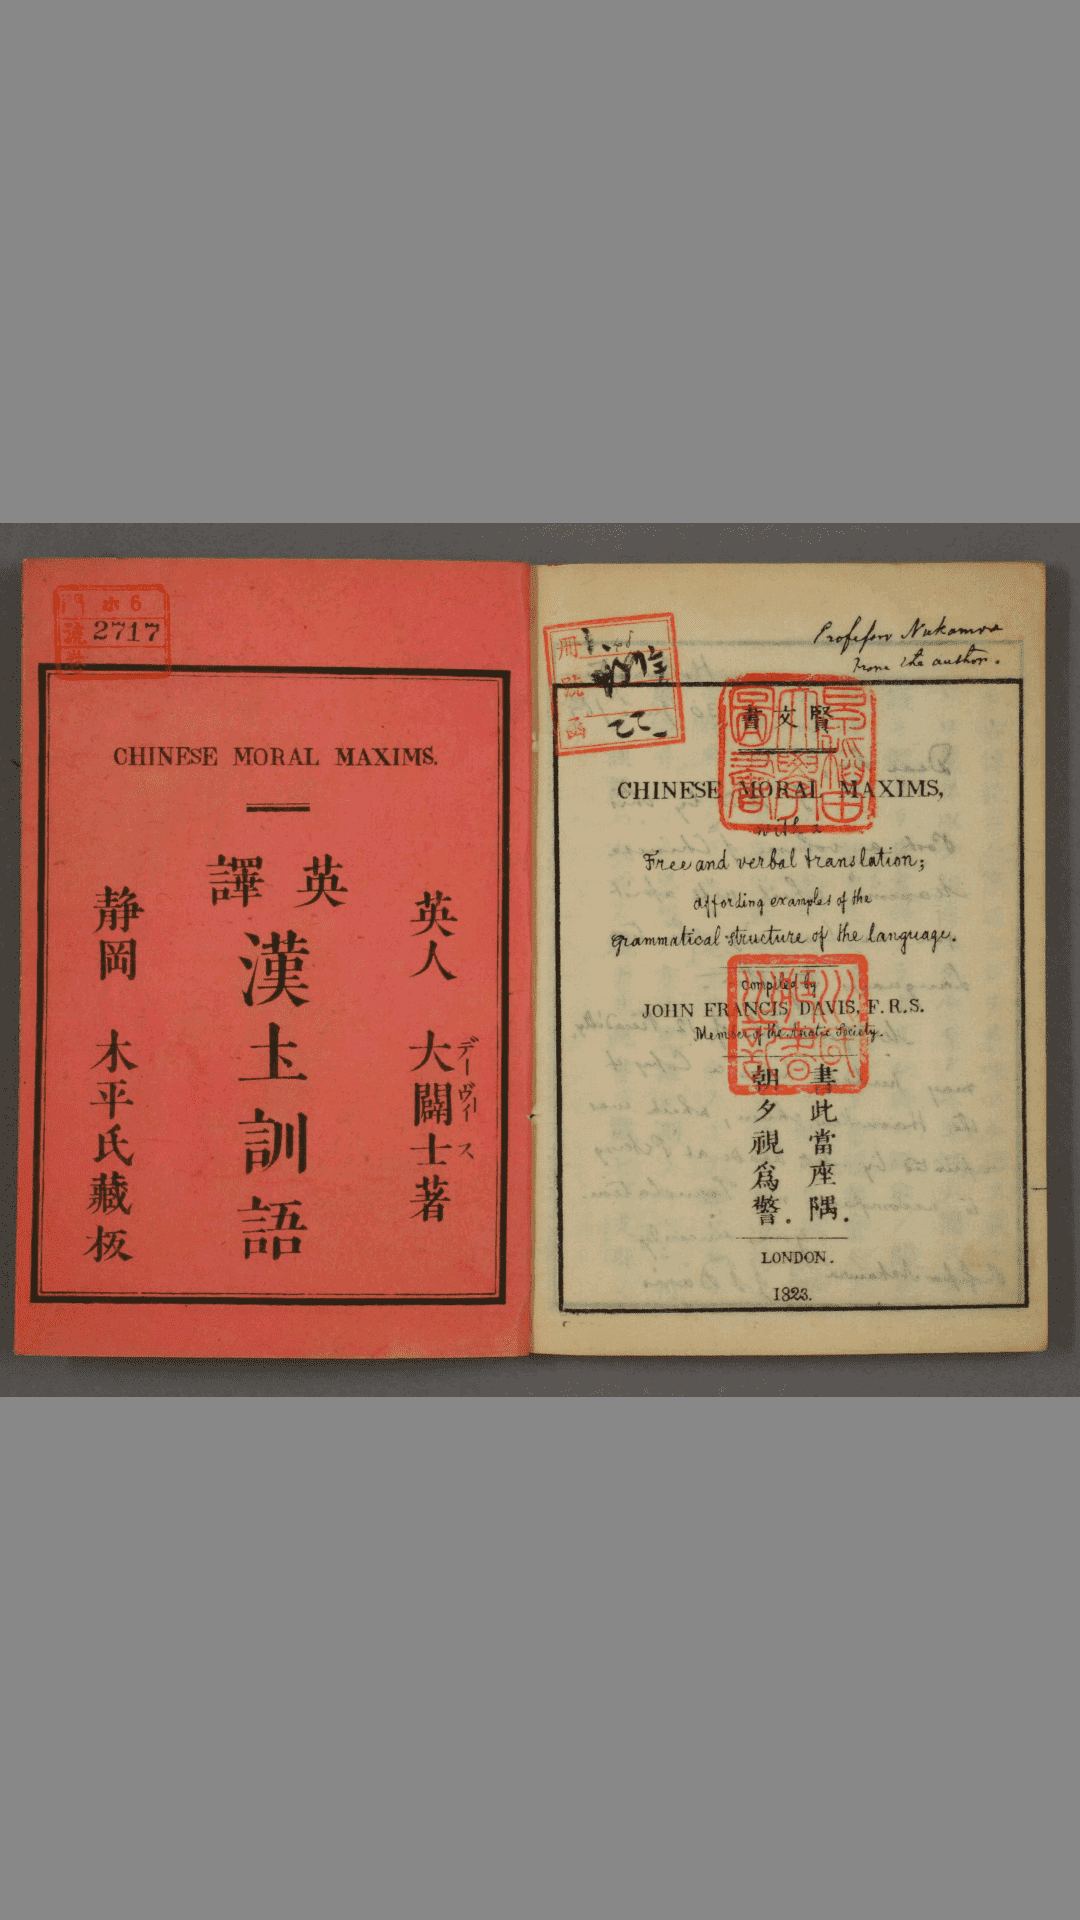 門 ホ6
號 2717
卷
CHINESE MORAL MAXIMS.
英人 大闢士著
デーヴィス
英譯
漢土訓語
静岡 木平氏藏板
冊
號
函
Professor Nakamura
from the author.
賢文書
CHINESE MORAL MAXIMS,
with a
Free and verbal translation;
affording examples of the
grammatical structure of the language.
compiled by
JOHN FRANCIS DAVIS, F.R.S.
Member of the Asiatic Society.
書此當座隅.
朝夕視爲警.
LONDON.
1823.
早稲田
大學
圖書